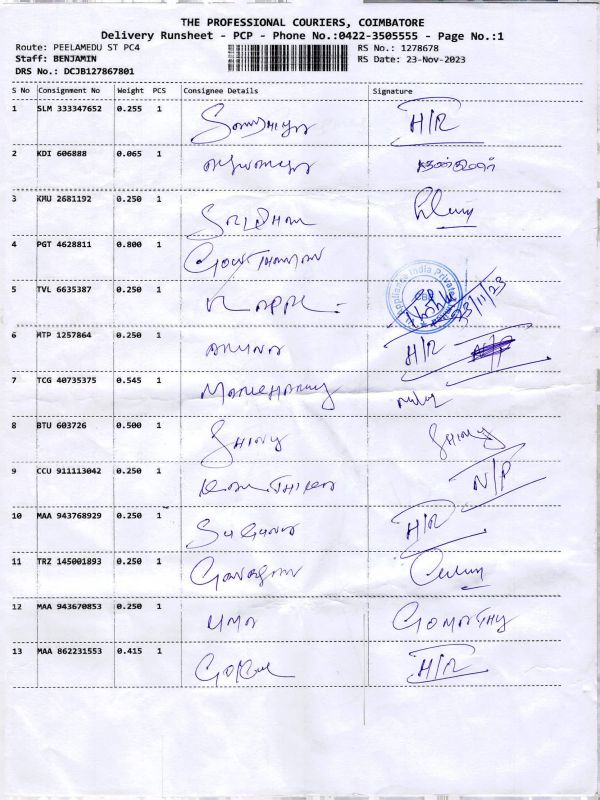 THE PROFESSIONAL COURIERS, COIMBATORE
Delivery Runsheet - PCP - Phone No.:0422-3505555 - Page No.:1
Route: PEELAMEDU ST PC4 RS No.: 1278678
Staff: BENJAMIN RS Date: 23-Nov-2023
DRS No.: DCJB127867801
S No Consignment No Weight PCS Consignee Details Signature
1 SLM 333347652 0.255 1 H/R
2 KDI 606888 0.065 1
3 KMU 2681192 0.250 1 Sridhar
4 PGT 4628811 0.800 1 Gowthaman
5 TVL 6635387 0.250 1 23/11/23
6 MTP 1257864 0.250 1 Aruna H/R
7 TCG 40735375 0.545 1
8 BTU 603726 0.500 1 Shiny Shiny
9 CCU 911113042 0.250 1 N/P
10 MAA 943768929 0.250 1 Suguna H/R
11 TRZ 145001893 0.250 1
12 MAA 943670853 0.250 1 Uma Gomathy
13 MAA 862231553 0.415 1 Gokul H/R